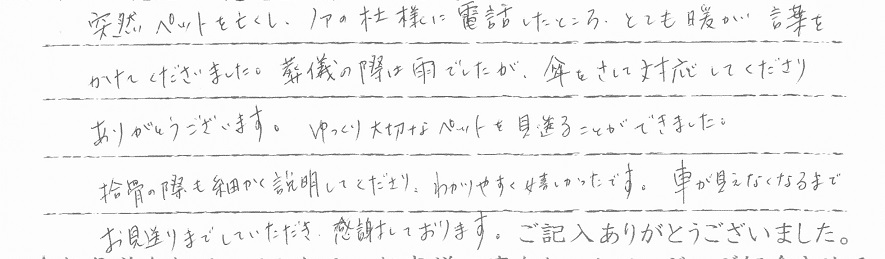 突然ペットを亡くし、ノアの杜様に電話したところ、とても暖かい言葉を
かけてくださいました。葬儀の際は雨でしたが、傘をさして対応してくださり
ありがとうございます。ゆっくり大切なペットを見送ることができました。
拾骨の際も細かく説明してくださり、わかりやすく嬉しかったです。車が見えなくなるまで
お見送りまでしていただき、感謝しております。ご記入ありがとうございました。